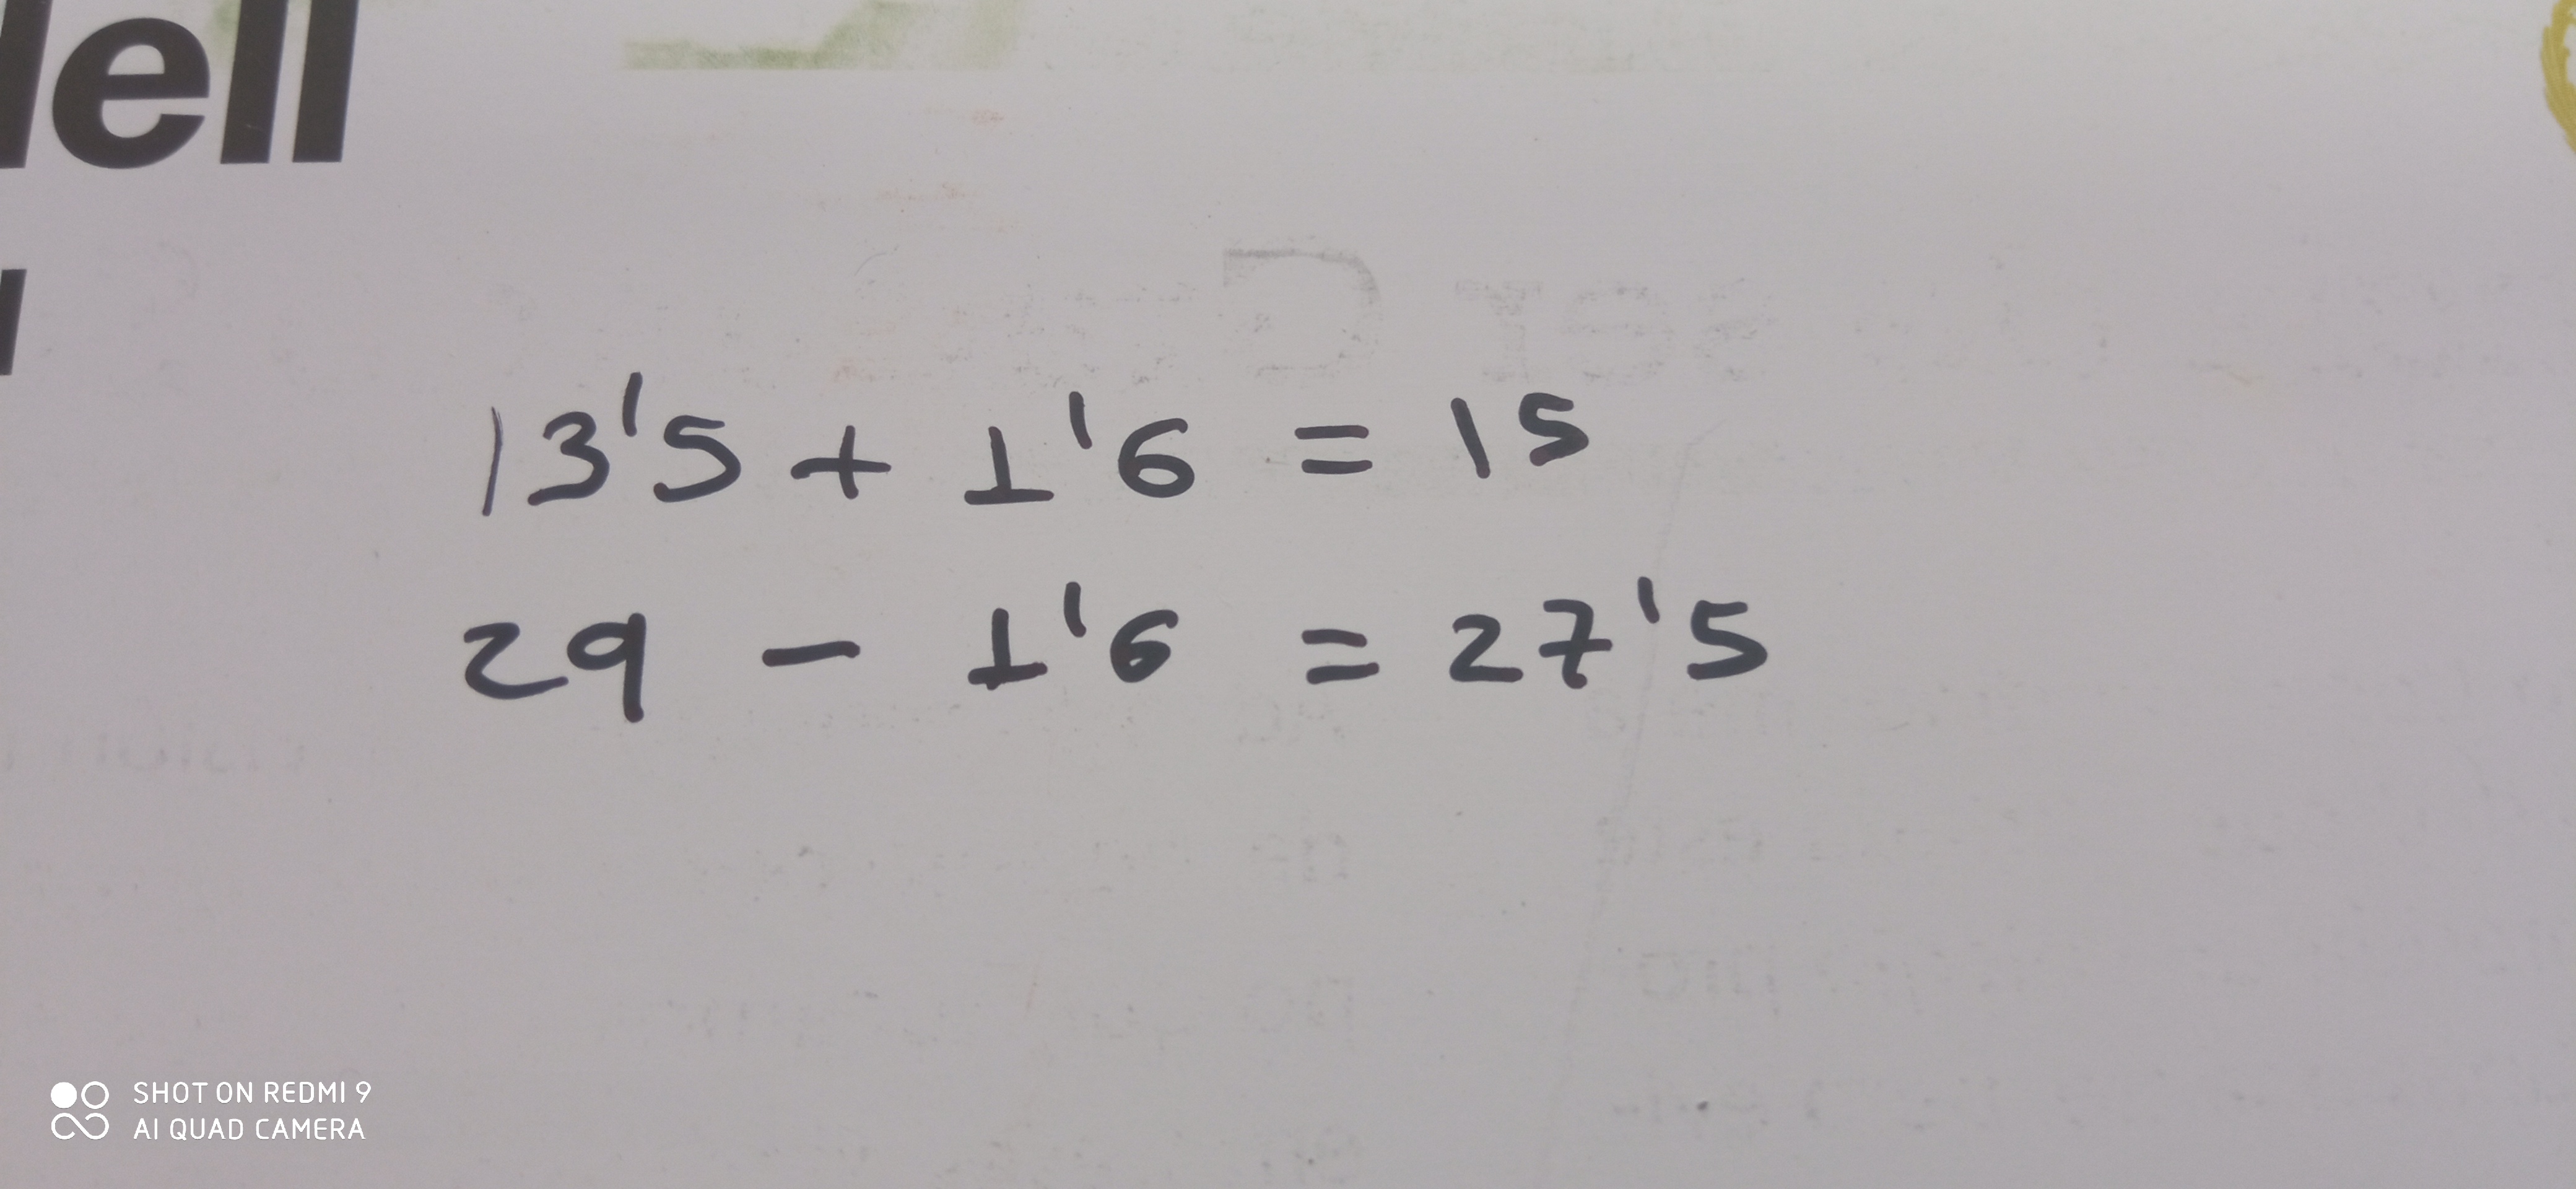 ell
13'5 + 1'6 = 15
29 - 1'6 = 27'5
SHOT ON REDMI 9
AI QUAD CAMERA